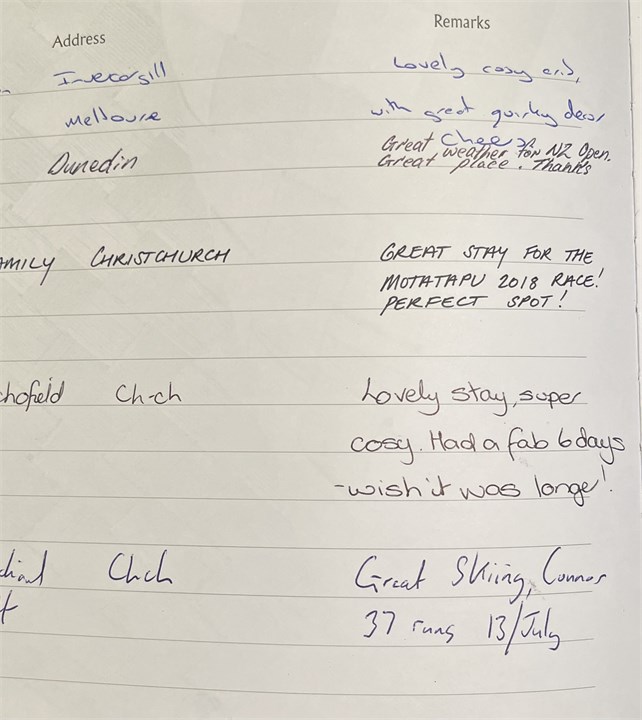 Address Remarks
Invecorgill Lovely cosy crib,
Melbourne with great quirky decor
Cheers
Dunedin Great weather for NZ Open.
Great place. Thanks
AMILY CHRISTCHURCH GREAT STAY FOR THE
MOTATAPU 2018 RACE!
PERFECT SPOT!
chofield Ch-ch Lovely stay, super
cosy. Had a fab 6 days
- wish it was longer!
Chch Great Skiing, Connor
37 runs 13/July